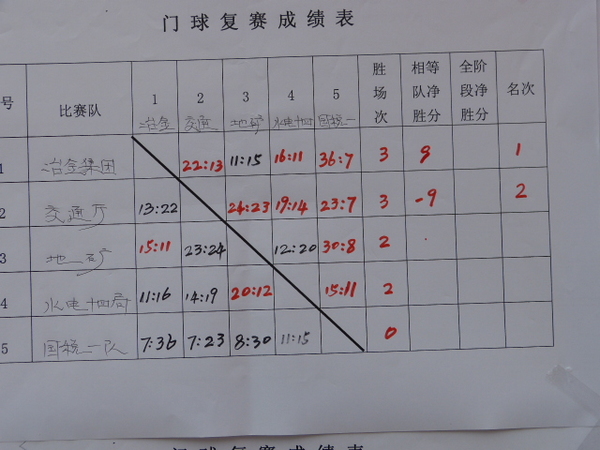 门球复赛成绩表
号 比赛队 1 冶金 2 交通 3 地矿 4 水电十四 5 国税一 胜场次 相等队净胜分 全阶段净胜分 名次
1 冶金集团 22:13 11:15 16:11 36:7 3 9 1
2 交通厅 13:22 24:23 19:14 23:7 3 -9 2
3 地一矿 15:11 23:24 12:20 30:8 2
4 水电十四局 11:16 14:19 20:12 15:11 2
5 国税一队 7:36 7:23 8:30 11:15 0
门球复赛成绩表